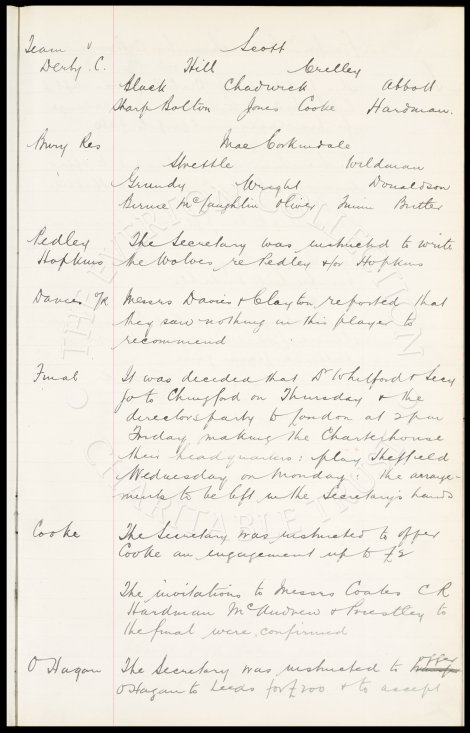 Team v Scott
Derby C. Hill Crelley
Black Chadwick Abbott
Sharp Bolton Jones Cooke Hardman.
Bury Res MacCorkindale
Strettle Wildman
Grundy Wright Donaldson
Birnie McLaughlin Oliver Butler
Pedley The Secretary was instructed to write
Hopkins the Wolves re Pedley &/or Hopkins
Davies Messrs Davies & Clayton reported that
they saw nothing in this player to
recommend
Final It was decided that Dr Whitford & Secy
go to Chingford on Thursday & the
directors party to London at 2 pm
Friday, making the Charterhouse
their headquarters: play Sheffield
Wednesday on Monday: the arrange-
ments to be left in the Secretary's hands
Cooke The Secretary was instructed to offer
Cooke an engagement up to £2
The invitations to Messrs Coates C R
Hardman McAndrew & Priestley to
the final were confirmed
O Hagan The Secretary was instructed to offer
O Hagan to Leeds for £200 & to accept
THE EVERTON COLLECTION
CHARITABLE TRUST